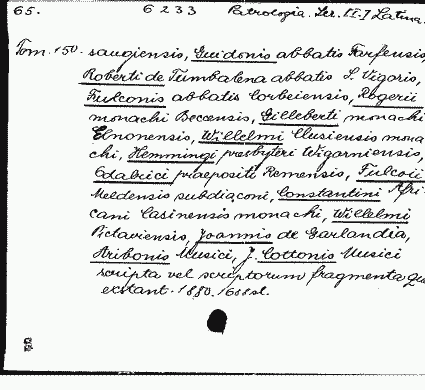 65. 6233 Patrologia. Ser. II-I Latina.
Tom. 150. saugiensis, Guidonis abbatis Farfensis,
Roberti de Tumbalena abbatis S. Vigoris,
Fulconis abbatis Corbeiensis, Rogerii
monachi Beccensis, Gilleberti monachi
Elnonensis, Willelmi Clusiensis mona
chi, Hemmingi presbyteri Wigorniensis,
Odalrici praepositi Remensis, Fulcoii
Meldensis subdiaconi, Constantini Afri-
cani Casinensis monachi, Willelmi
Pictaviensis, Joannis de Garlandia,
Aribonis Musici, J. Cottonis Musici
scripta vel scriptorum fragmenta quae
extant. 1880. 1688.